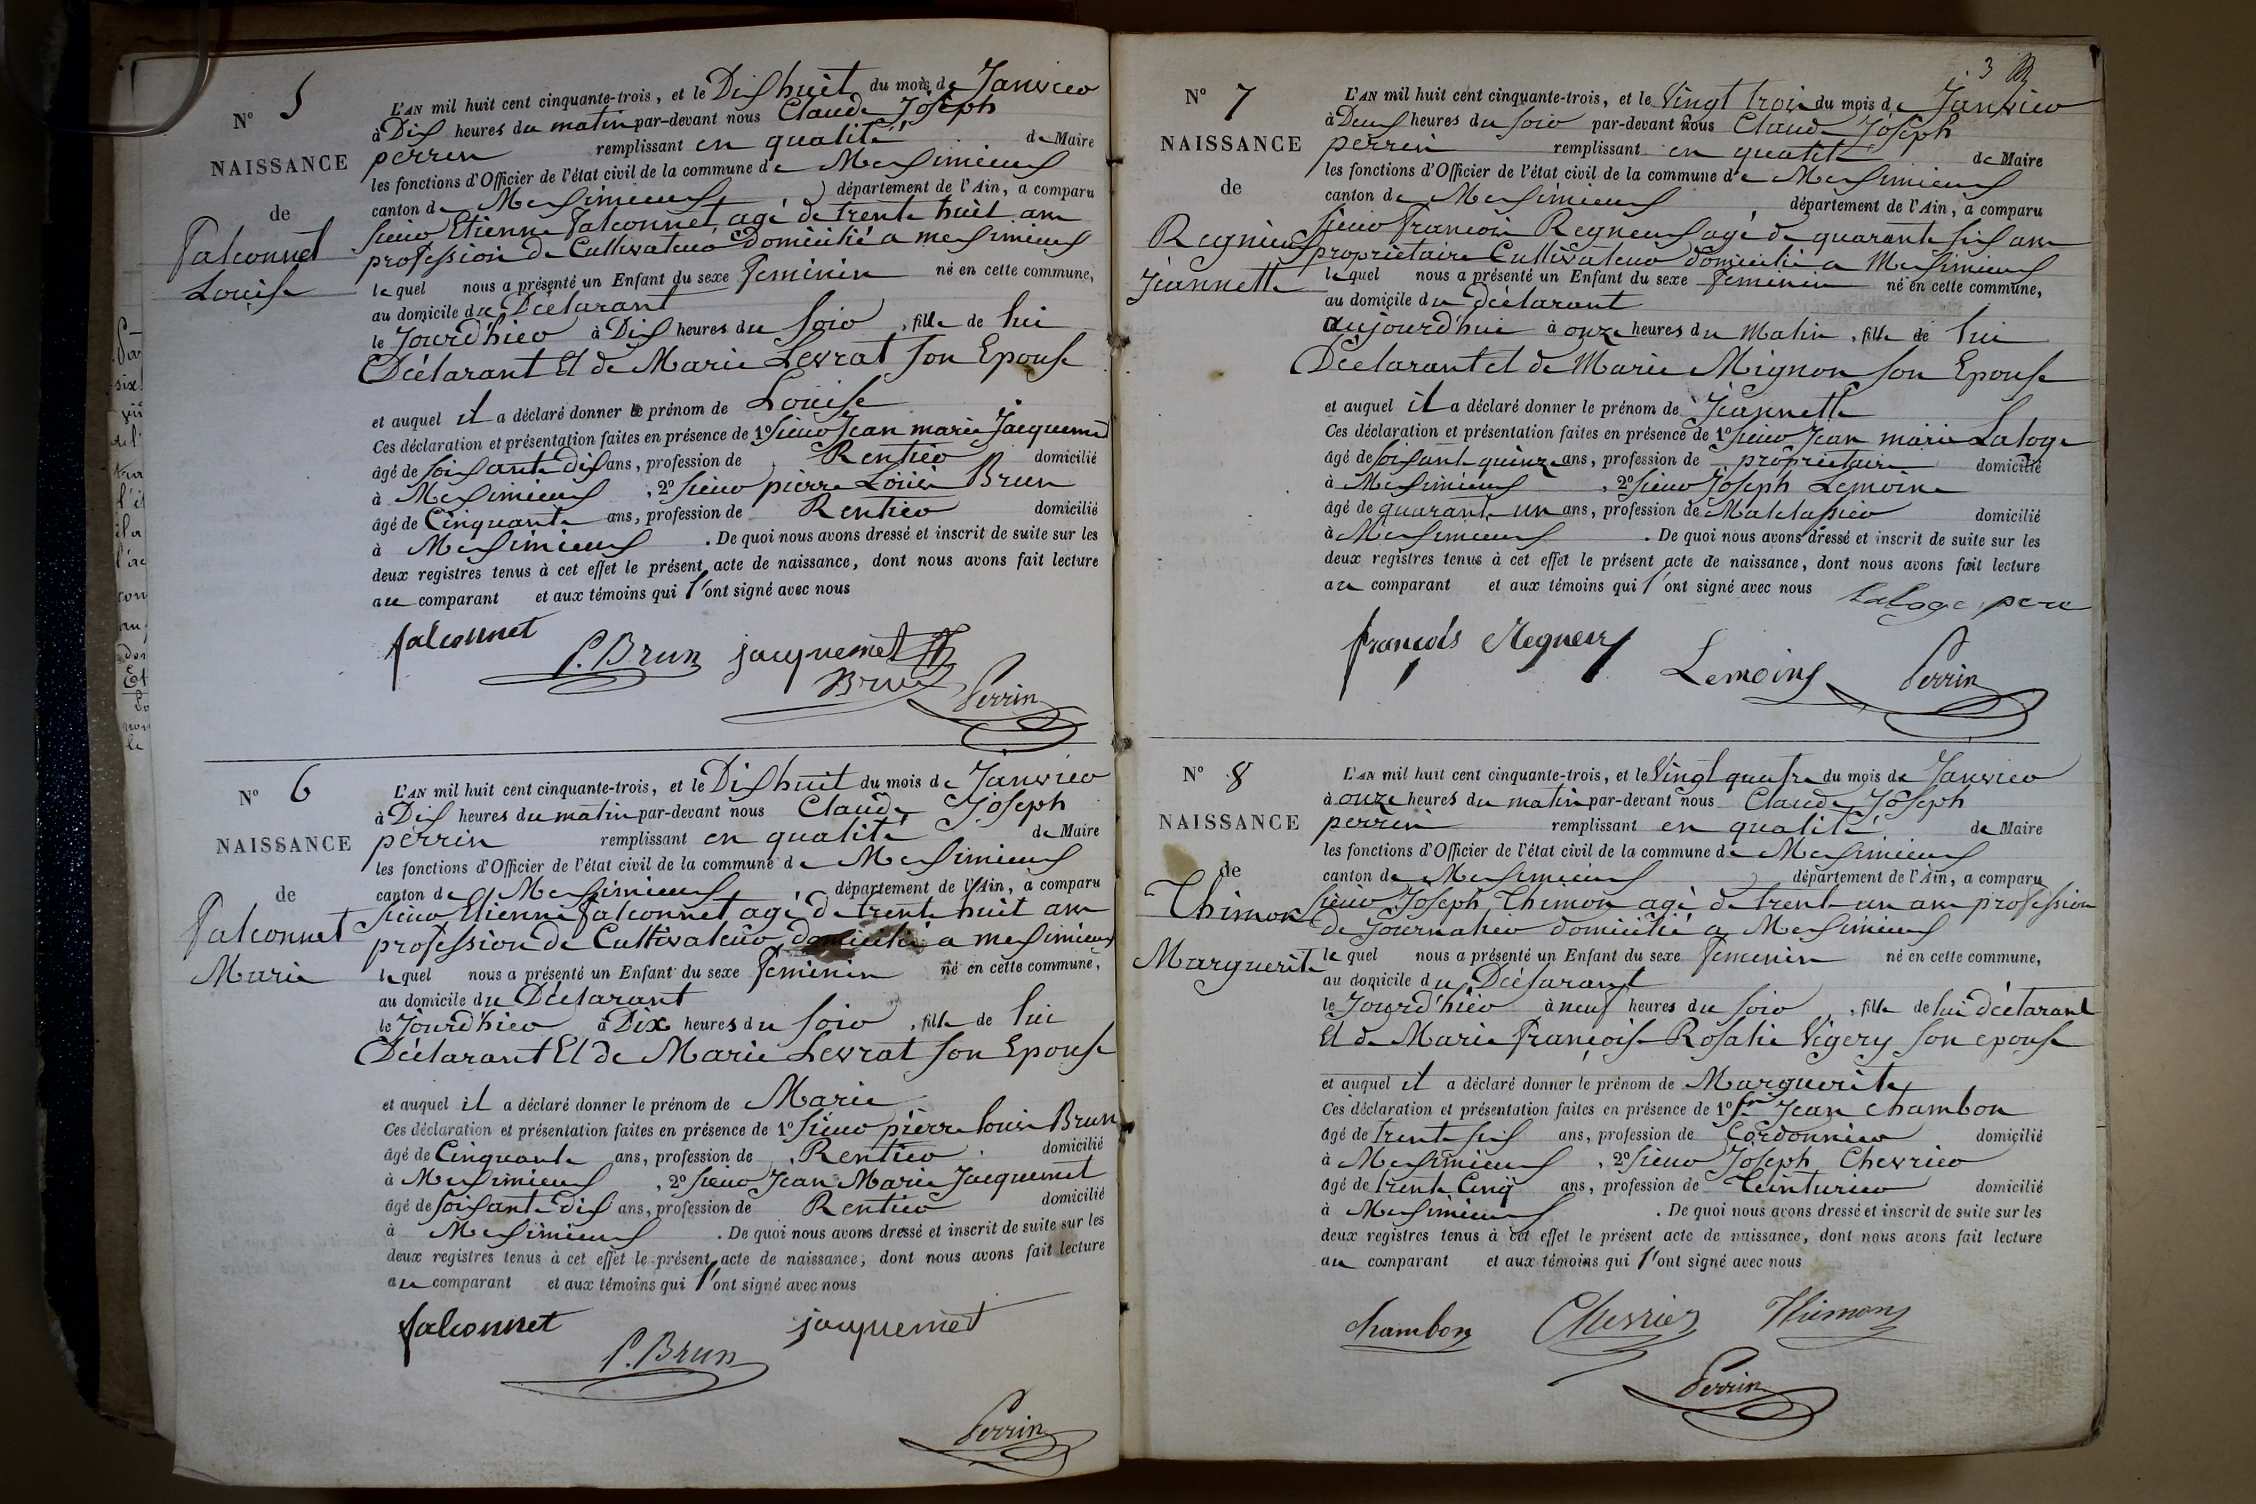 N° 5
NAISSANCE
de
Falconnet
Louise
L'AN mil huit cent cinquante-trois, et le Dix huit du mois de Janvier
à Dix heures du matin par-devant nous Claude Joseph
perrin remplissant en qualité de Maire
les fonctions d'Officier de l'état civil de la commune de Meximieux
canton de Meximieux département de l'Ain, a comparu
sieur Etienne Falconnet agé de trente huit ans
profession de Cultivateur Domicilié a meximieux
lequel nous a présenté un Enfant du sexe feminin né en cette commune,
au domicile du Déclarant
le Jourd'hier à Dix heures du soir, fille de lui
Déclarant Et de Marie Levrat son Epouse
et auquel il a déclaré donner le prénom de Louise
Ces déclaration et présentation faites en présence de 1° sieur Jean marie Jacquemet
âgé de soixante dix ans, profession de Rentier domicilié
à Meximieux, 2° sieur pierre Louis Brun
âgé de Cinquante ans, profession de Rentier domicilié
à Meximieux. De quoi nous avons dressé et inscrit de suite sur les
deux registres tenus à cet effet le présent acte de naissance, dont nous avons fait lecture
au comparant et aux témoins qui l'ont signé avec nous
falconnet
P. Brun jacquemet
Brun Perrin
N° 6
NAISSANCE
de
Falconnet
Marie
L'AN mil huit cent cinquante-trois, et le Dix huit du mois de Janvier
à Dix heures du matin par-devant nous Claude Joseph
perrin remplissant en qualité de Maire
les fonctions d'Officier de l'état civil de la commune de Meximieux
canton de Meximieux département de l'Ain, a comparu
sieur Etienne falconnet agé de trente huit ans
profession de Cultivateur domicilié a meximieux
lequel nous a présenté un Enfant du sexe feminin né en cette commune,
au domicile du Déclarant
le Jourd'hier à Dix heures du soir, fille de lui
Déclarant Et de Marie Levrat son Epouse
et auquel il a déclaré donner le prénom de Marie
Ces déclaration et présentation faites en présence de 1° sieur pierre louis Brun
âgé de Cinquante ans, profession de Rentier domicilié
à Meximieux, 2° sieur Jean Marie Jacquemet
âgé de soixante dix ans, profession de Rentier domicilié
à Meximieux. De quoi nous avons dressé et inscrit de suite sur les
deux registres tenus à cet effet le présent acte de naissance, dont nous avons fait lecture
au comparant et aux témoins qui l'ont signé avec nous
falconnet jacquemet
P. Brun
Perrin
3
N° 7
NAISSANCE
de
Regnieux
Jeannette
L'AN mil huit cent cinquante-trois, et le Vingt trois du mois de Janvier
à Deux heures du soir par-devant nous Claude Joseph
perrin remplissant en qualité de Maire
les fonctions d'Officier de l'état civil de la commune de Meximieux
canton de Meximieux département de l'Ain, a comparu
sieur francois Regneux agé de quarante six ans
propriétaire Cultivateur domicilié a Meximieux
lequel nous a présenté un Enfant du sexe feminin né en cette commune,
au domicile du déclarant
aujourd'hui à onze heures du Matin, fille de lui
Déclarant et de Marie Mignon son Epouse
et auquel il a déclaré donner le prénom de Jeannette
Ces déclaration et présentation faites en présence de 1° sieur Jean marie Laloge
âgé de soixante quinze ans, profession de propriétaire domicilié
à Meximieux, 2° sieur Joseph Lemoine
âgé de quarante un ans, profession de Matelassier domicilié
à Meximieux. De quoi nous avons dressé et inscrit de suite sur les
deux registres tenus à cet effet le présent acte de naissance, dont nous avons fait lecture
au comparant et aux témoins qui l'ont signé avec nous Laloge pere
françois Regneux
Lemoine Perrin
N° 8
NAISSANCE
de
Thimon
Marguerite
L'AN mil huit cent cinquante-trois, et le Vingt quatre du mois de Janvier
à onze heures du matin par-devant nous Claude Joseph
perrin remplissant en qualité de Maire
les fonctions d'Officier de l'état civil de la commune de Meximieux
canton de Meximieux département de l'Ain, a comparu
sieur Joseph Thimon agé de trente un ans profession
de Journalier domicilié a Meximieux
lequel nous a présenté un Enfant du sexe femenin né en cette commune,
au domicile du Déclarant
le Jourd'hier à neuf heures du soir, fille de lui déclarant
Et de Marie françoise Rosalie Vigery son epouse
et auquel il a déclaré donner le prénom de Marguerite
Ces déclaration et présentation faites en présence de 1° sr Jean chambon
âgé de trente six ans, profession de Cordonnier domicilié
à Meximieux, 2° sieur Joseph Chevrier
âgé de trente Cinq ans, profession de Teinturier domicilié
à Meximieux. De quoi nous avons dressé et inscrit de suite sur les
deux registres tenus à cet effet le présent acte de naissance, dont nous avons fait lecture
au comparant et aux témoins qui l'ont signé avec nous
chambon Chevrier Thimon
Perrin